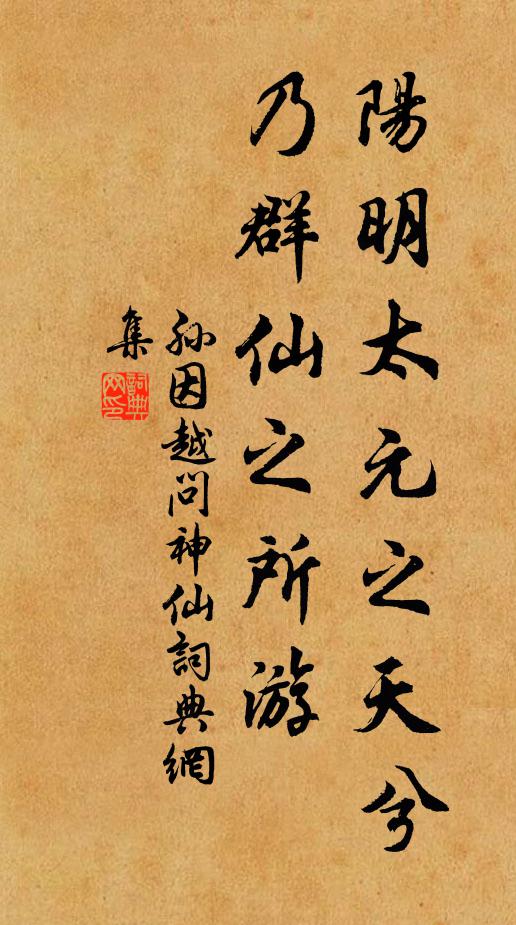 陽明太元之天兮
乃群仙之所游
孙因越问神仙詞典網
集
詞典网印